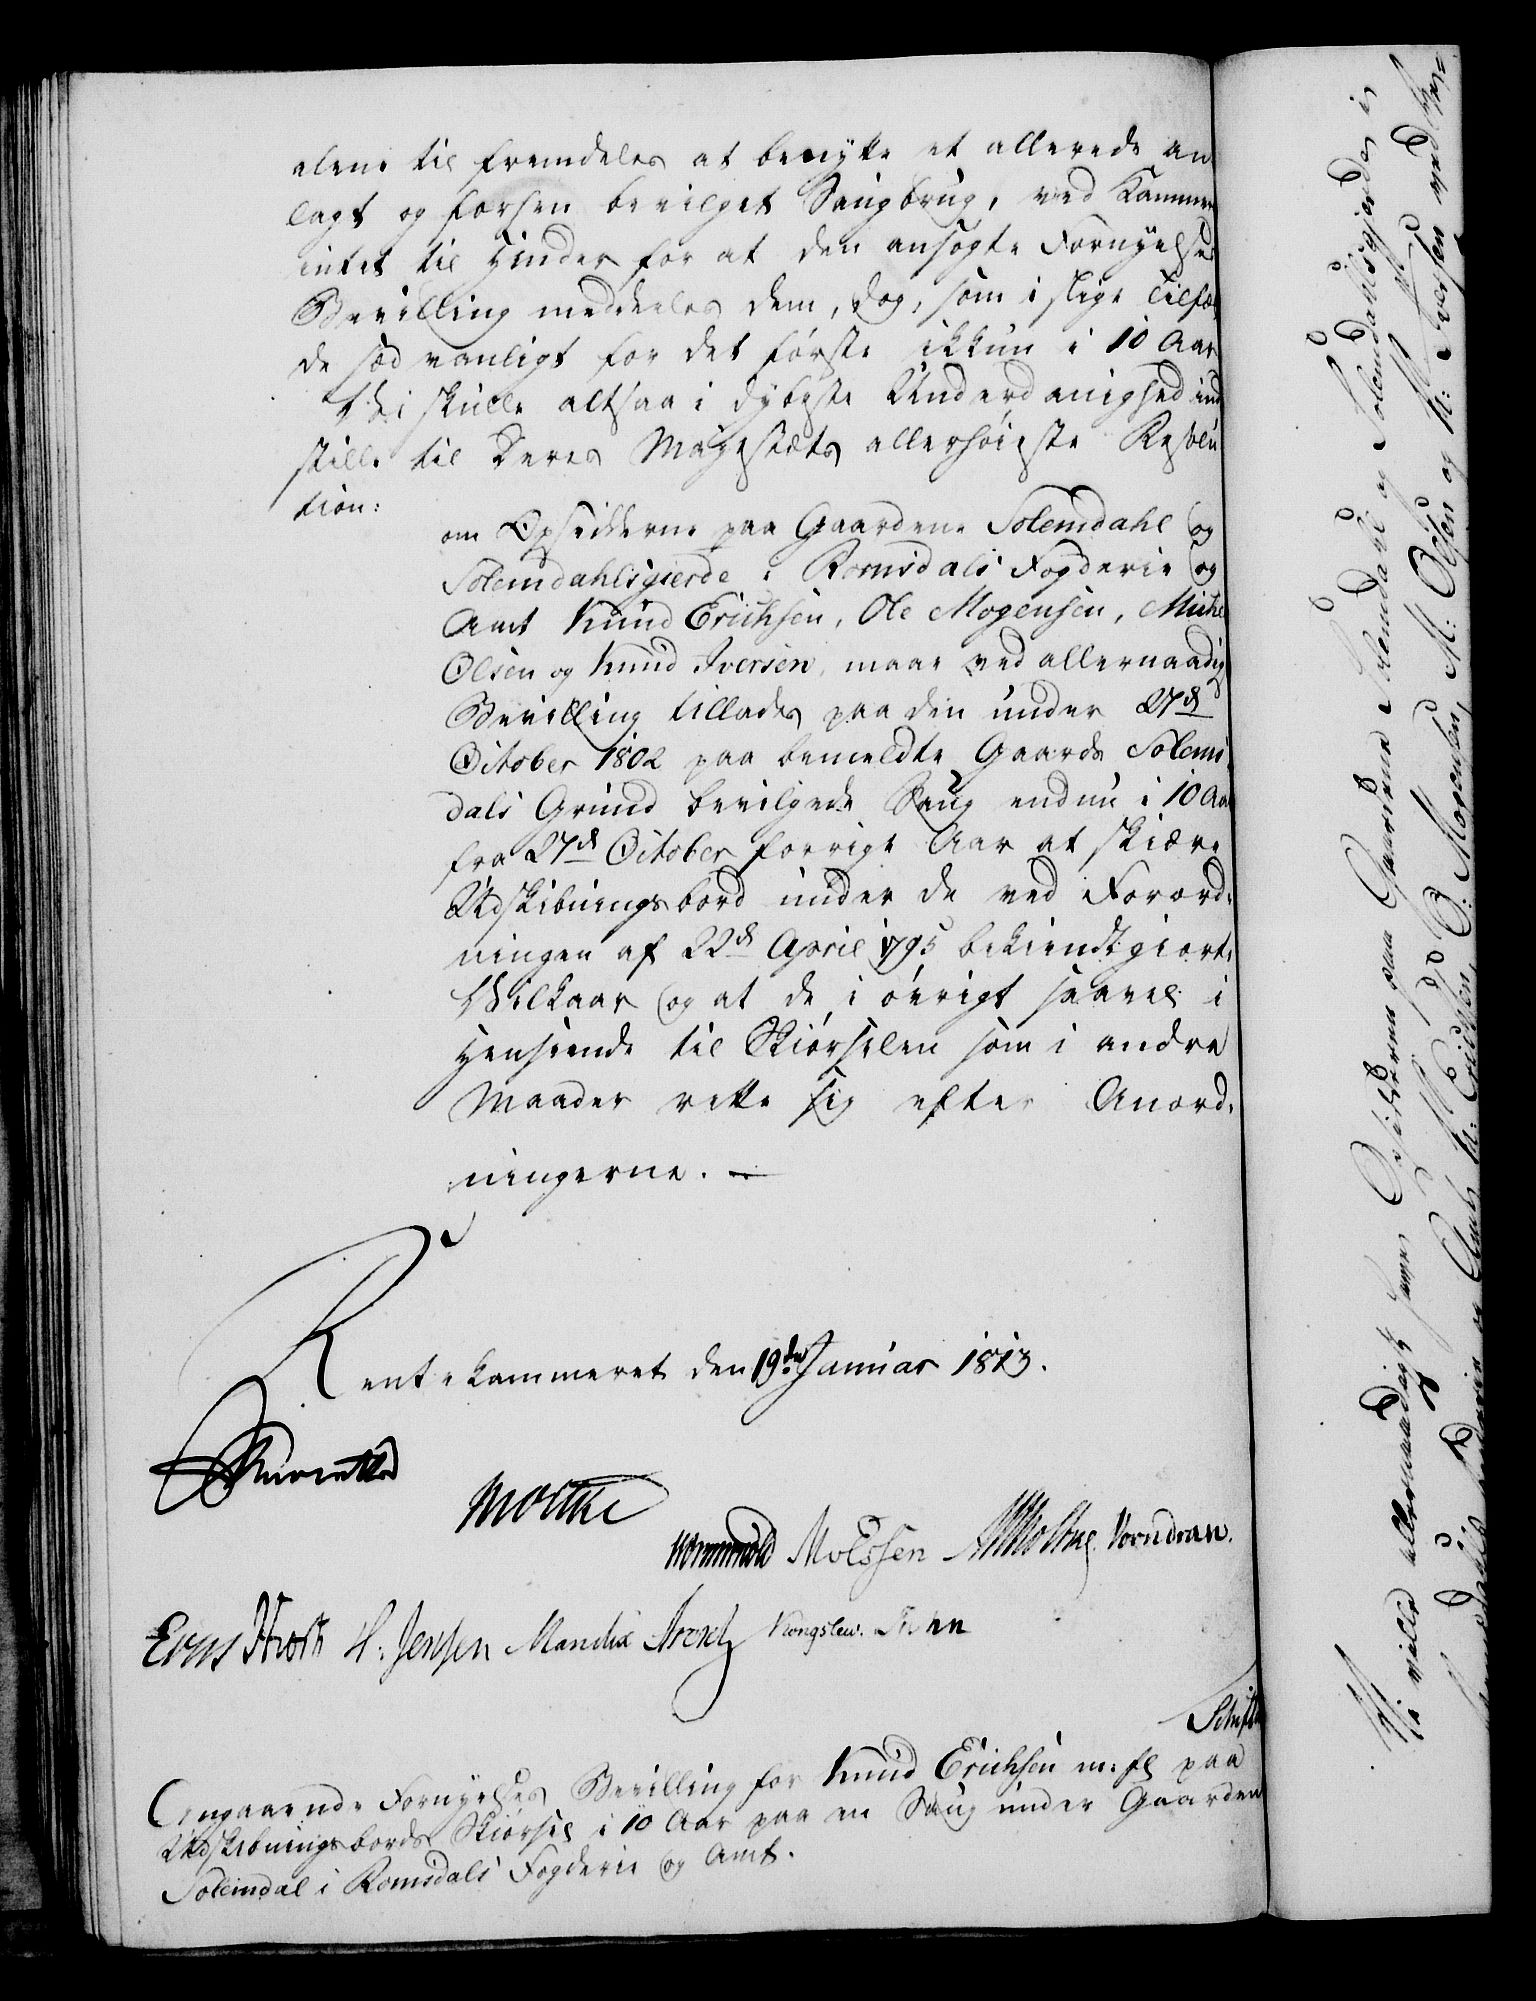 alene til fremdeles at benytte et allerede an
lagt og forhen bevilget Saugbrug, ved Kammer
intet til Hinder for at den ansøgte Fornyelses
Bevilling meddeeles dem, dog, som i slige Tilfæl
de sædvanligt for det første ikkun i 10 Aar
Vi skulle altsaa i dybeste Underdanighed ind
stille til Deres Majestæts allerhøieste Resolu
tion:
om Opsidderne paa Gaardene Solemdahl og
Solemdahlsgierde i Romsdals Fogderie og
Amt Knud Erichsen, Ole Mogensen, Michel
Olsen og Knud Iversen, maae ved allernaadigst
Bevilling tillades paa den under 27d
October 1802 paa bemeldte Gaards Solem
dals Grund bevilgede Saug endnu i 10 Aar
fra 27d October forrige Aar at skiære
Udskibningsbord under de ved Forord-
ningen af 22d April 1795 bekiendtgiorte
Vilkaar og at de i øvrigt saavel i
Henseende til Skiørselen som i andre
Maader rette sig efter Anord-
ningerne. —
Rentekammeret den 19de Januar 1813.
Moltke
Wormskiold Molssen Vorndran.
Hiort H. Jensen Mandix Kongslew.
Angaaende Fornyelses Bevilling for Knud Erichsen m: fl paa
Udskibningsbords Skiørsel i 10 Aar paa en Saug under Gaarden
Solemdal i Romsdals Fogderie og Amt.
Vi ville allernaadigst have Opsidderne paa Gaardene Solemdahl og Solemdahlsgjerde i
Amt K: Erichsen, O: Mogensen, M: Olsen og K: Iversen